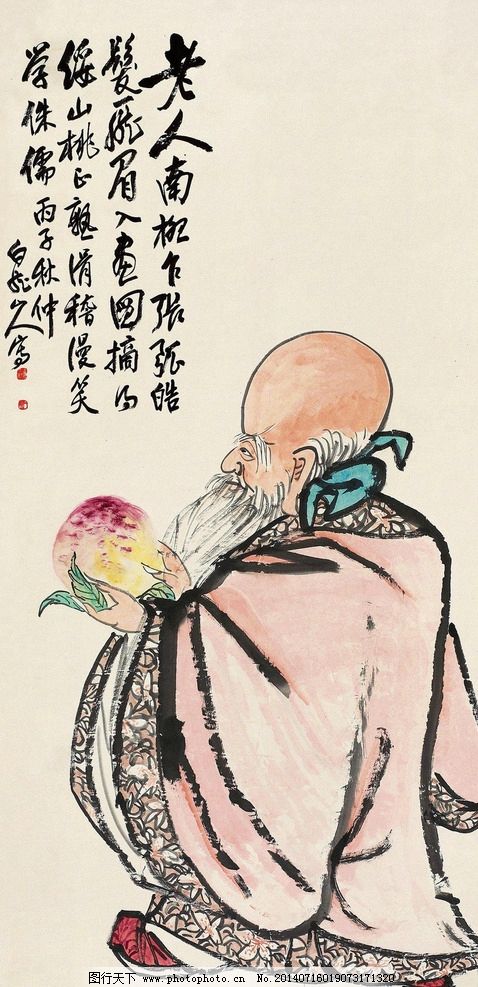 老人南極乍張弧皓
髮龐眉入畫圖摘得
綏山桃正熟滑稽漫笑
學侏儒丙子秋仲
白龍山人寫
图行天下 www.photophoto.cn No.20140716019073171320